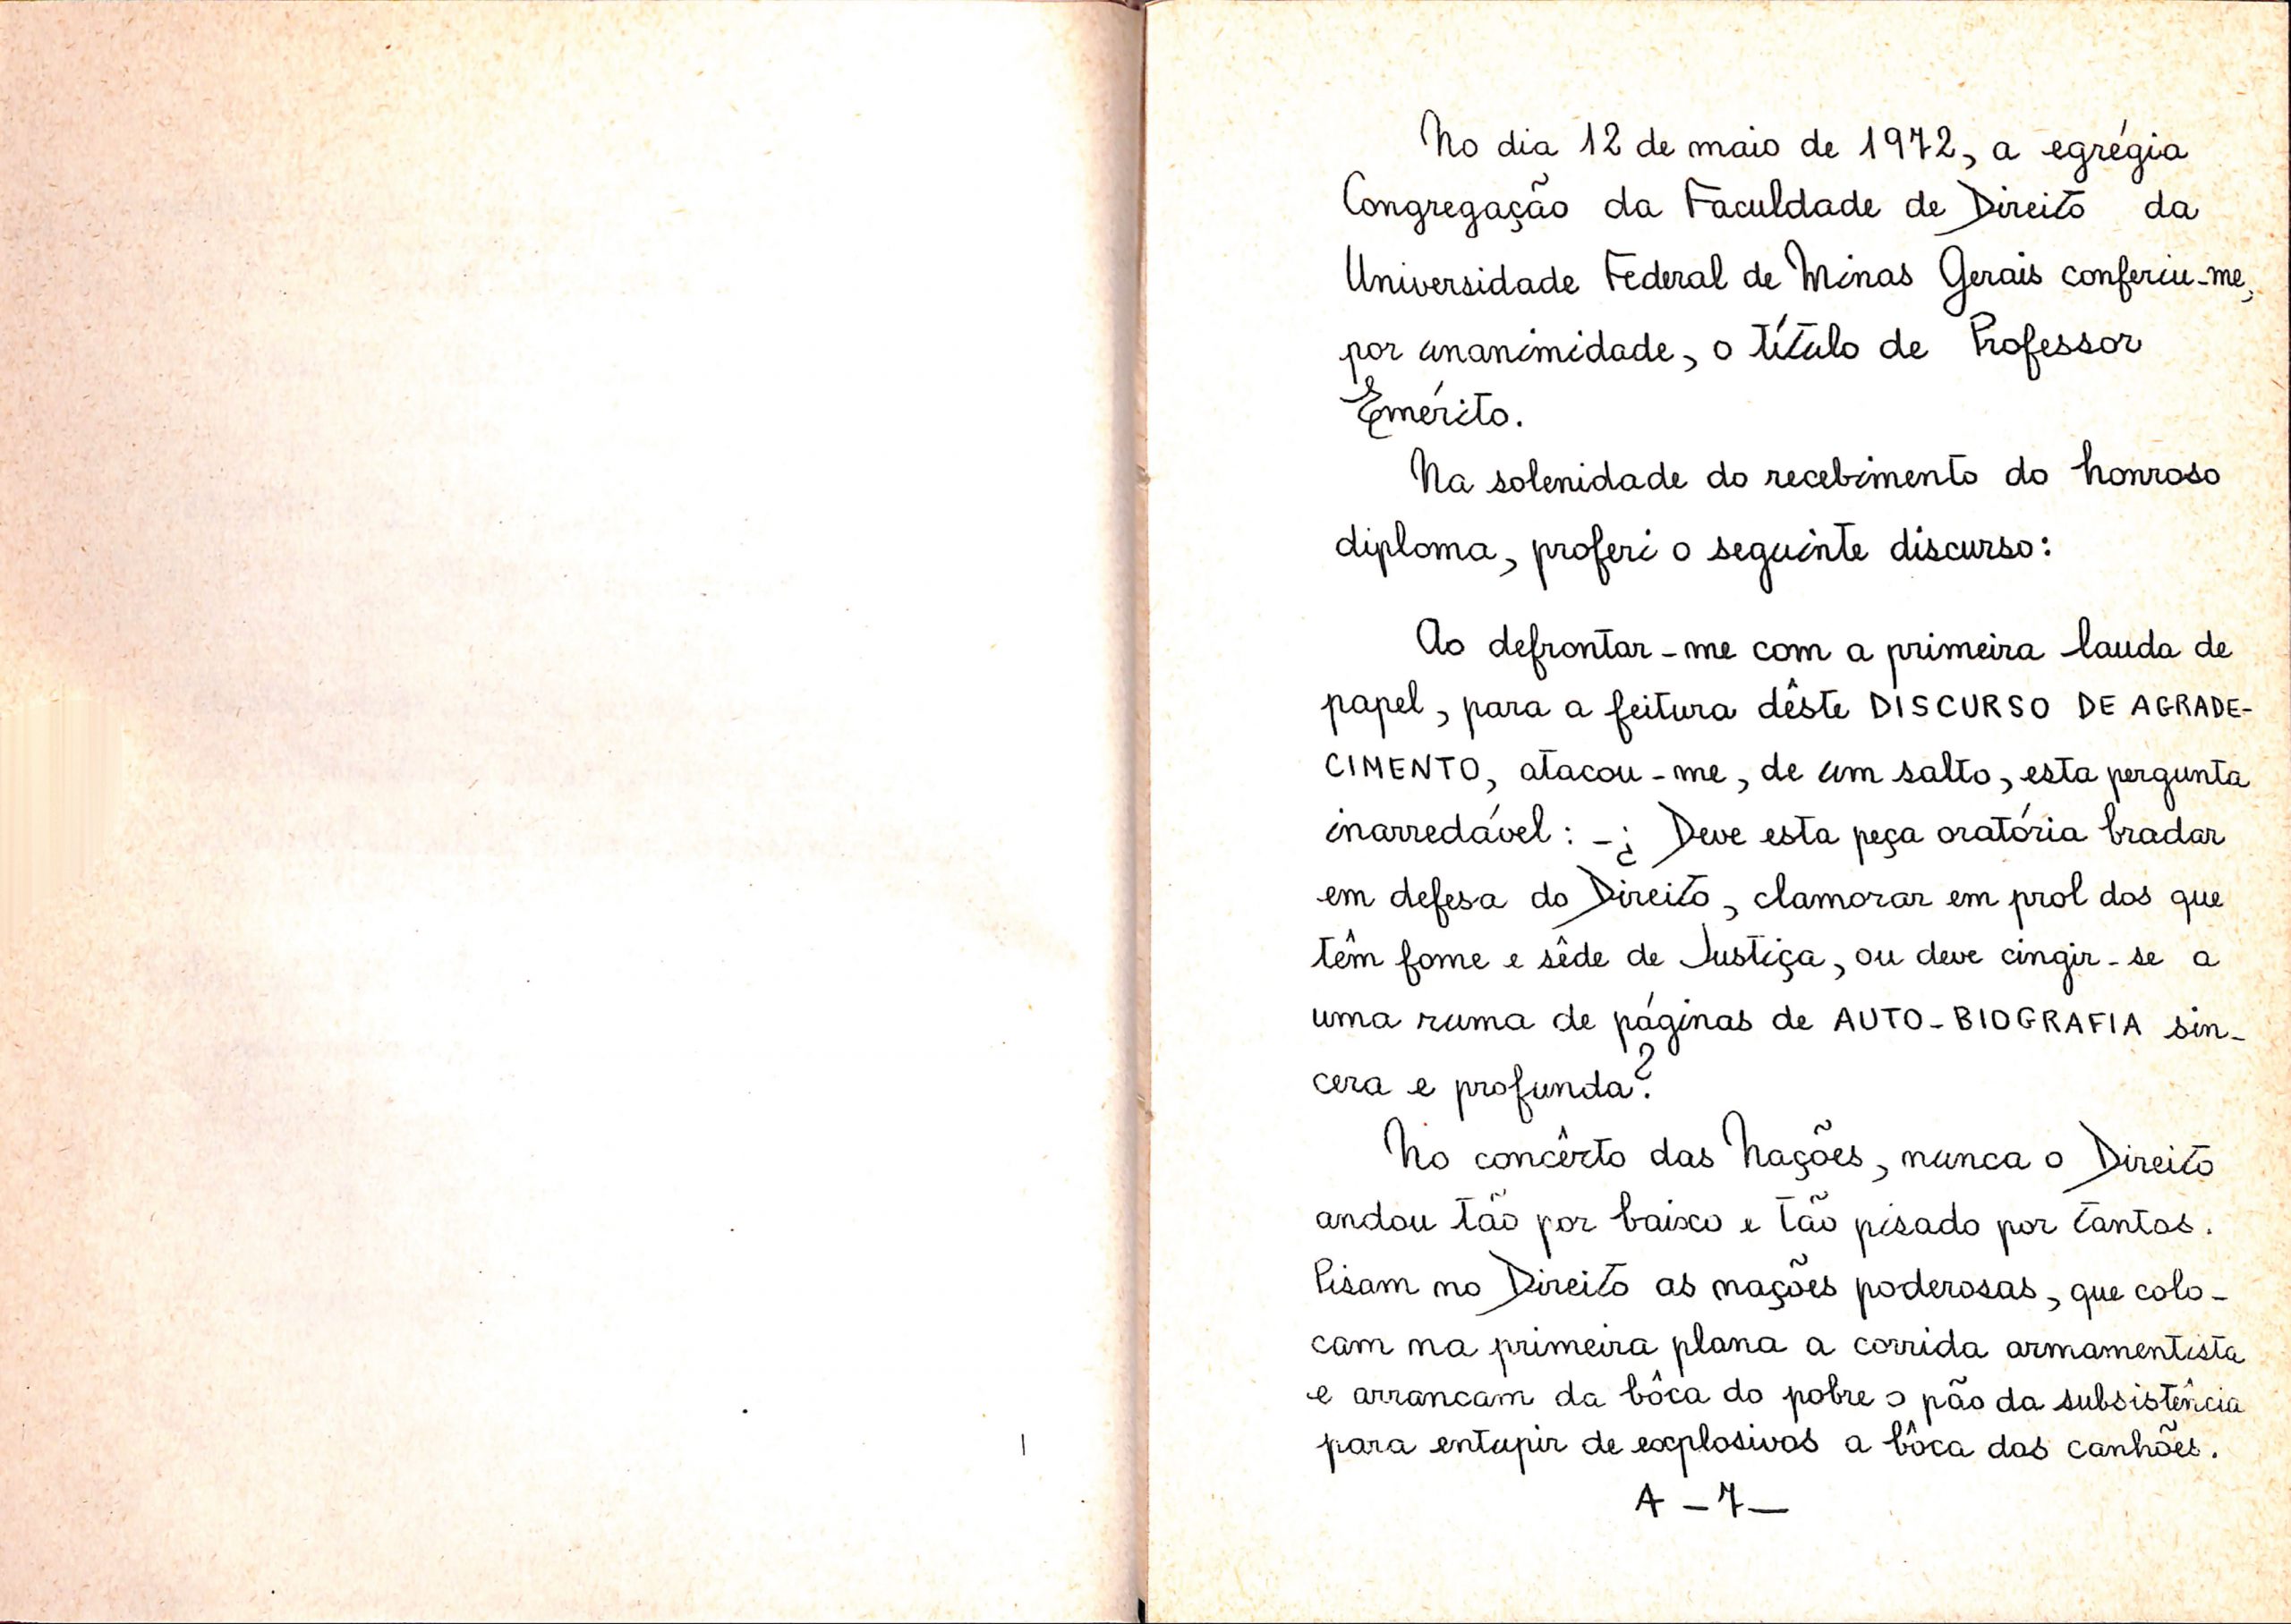 No dia 12 de maio de 1972, a egrégia
Congregação da Faculdade de Direito da
Universidade Federal de Minas Gerais conferiu-me,
por unanimidade, o título de Professor
Emérito.
Na solenidade do recebimento do honroso
diploma, proferi o seguinte discurso:
Ao defrontar-me com a primeira lauda de
papel, para a feitura dêste DISCURSO DE AGRADE-
CIMENTO, atacou-me, de um salto, esta pergunta
inarredável: -¿ Deve esta peça oratória bradar
em defesa do Direito, clamorar em prol dos que
têm fome e sêde de Justiça, ou deve cingir-se a
uma ruma de páginas de AUTO-BIOGRAFIA sin-
cera e profunda?
No concêrto das Nações, nunca o Direito
andou tão por baixo e tão pisado por tantos.
Pisam no Direito as nações poderosas, que colo-
cam na primeira plana a corrida armamentista
e arrancam da bôca do pobre o pão da subsistência
para entupir de explosivos a bôca dos canhões.
A -7-